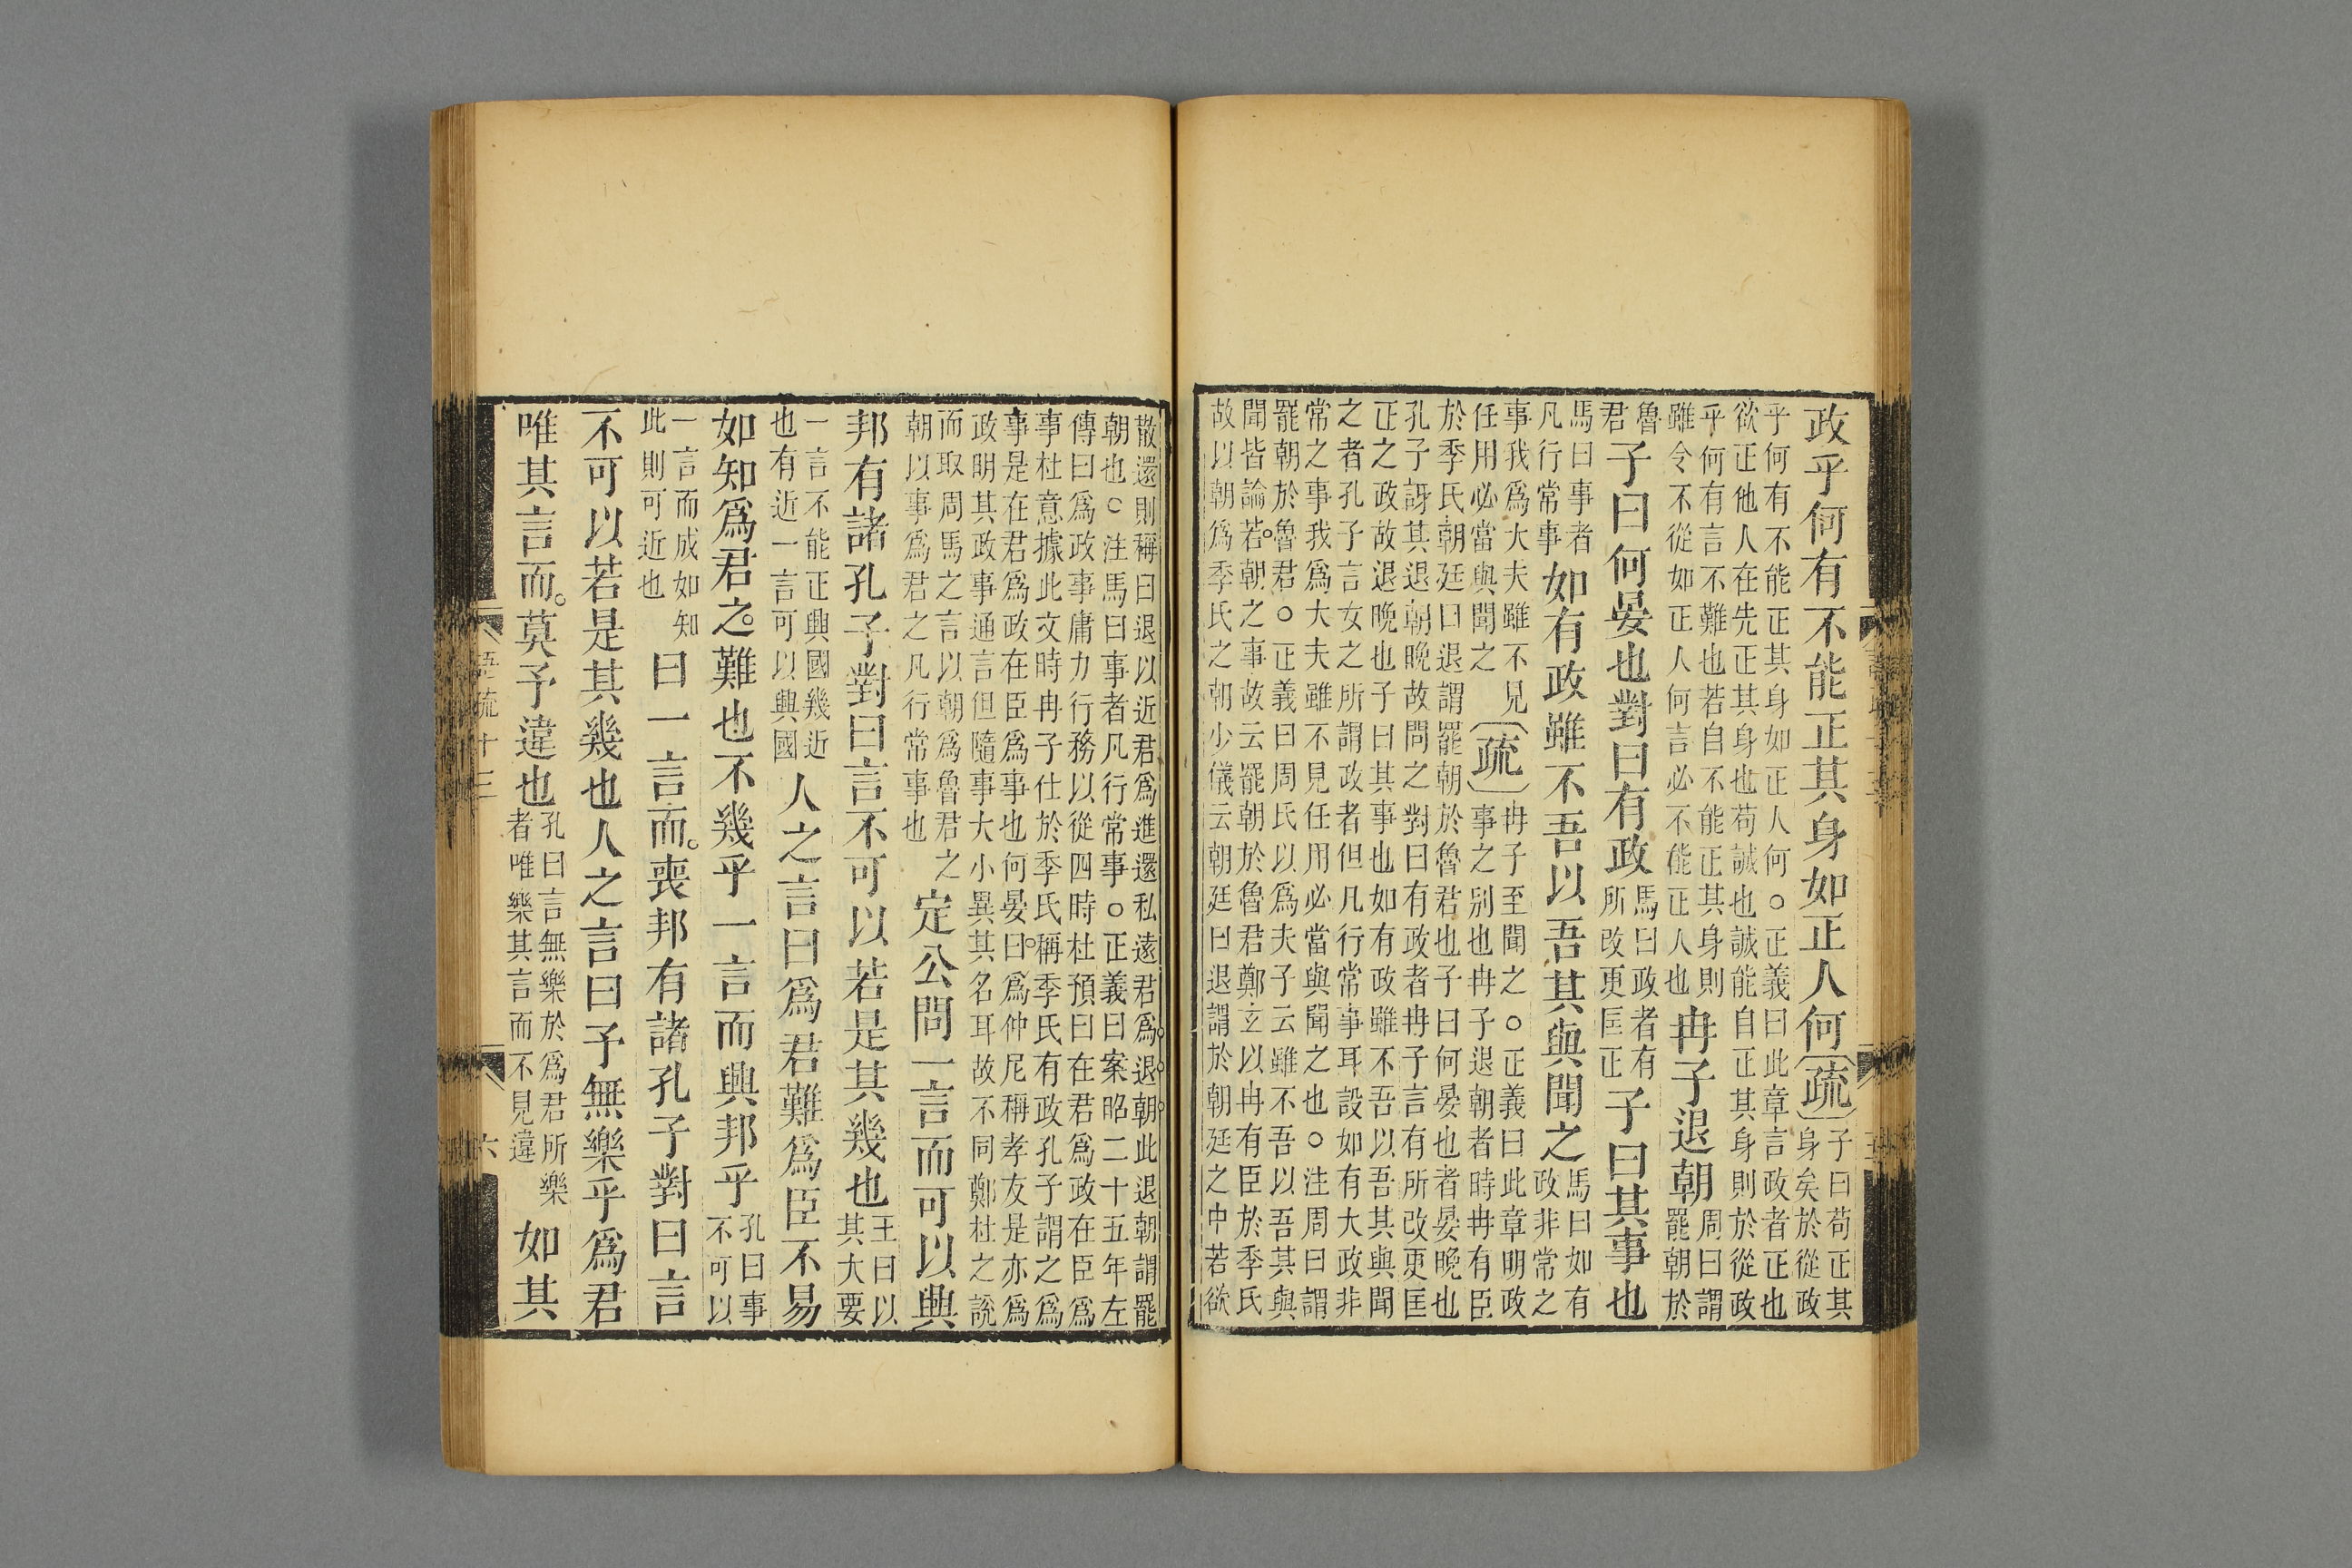 政乎何有不能正其身如正人何〔疏〕子曰苟正其
身矣於從政
乎何有不能正其身如正人何○正義曰此章言政者正也
欲正他人在先正其身也苟誠也誠能自正其身則於從政
乎何有言不難也若自不能正其身則
雖令不從如正人何言必不能正人也
冉子退朝周曰謂
罷朝於
魯
君
子曰何晏也對曰有政馬曰政者有
所改更匡正
子曰其事也
馬曰事者
凡行常事
如有政雖不吾以吾其與聞之馬曰如有
政非常之
事我爲大夫雖不見
任用必當與聞之
〔疏〕冉子至聞之○正義曰此章明政
事之別也冉子退朝者時冉有臣
於季氏朝廷曰退謂罷朝於魯君也子曰何晏也者晏晚也
孔子訝其退朝晚故問之對曰有政者冉子言有所改更匡
正之政故退晚也子曰其事也如有政雖不吾以吾其與聞
之者孔子言女之所謂政者但凡行常事耳設如有大政非
常之事我爲大夫雖不見任用必當與聞之也○注周曰謂
罷朝於魯君○正義曰周氏以爲夫子云雖不吾以吾其與
聞皆論若朝之事故云罷朝於魯君鄭玄以冉有臣於季氏
故以朝爲季氏之朝少儀云朝廷曰退謂於朝廷之中若欲
散還則稱曰退以近君爲進還私遠君爲退朝此退朝謂罷
朝也○注馬曰事者凡行常事○正義曰案昭二十五年左
傳曰爲政事庸力行務以從四時杜預曰在君爲政在臣爲
事杜意據此文時冉子仕於季氏稱季氏有政孔子謂之爲
事是在君爲政在臣爲事也何晏曰爲仲尼稱孝友是亦爲
政明其政事通言但隨事大小異其名耳故不同鄭杜之說
而取周馬之言以朝爲魯君之
朝以事爲君之凡行常事也
定公問一言而可以興
邦有諸孔子對曰言不可以若是其幾也王曰以
其大要
一言不能正興國幾近
也有近一言可以興國
人之言曰爲君難爲臣不易
如知爲君之難也不幾乎一言而興邦乎孔曰事
不可以
一言而成如知
此則可近也
曰一言而喪邦有諸孔子對曰言
不可以若是其幾也人之言曰予無樂乎爲君
唯其言而莫予違也孔曰言無樂於爲君所樂
者唯樂其言而不見違
如其
語疏十三
六